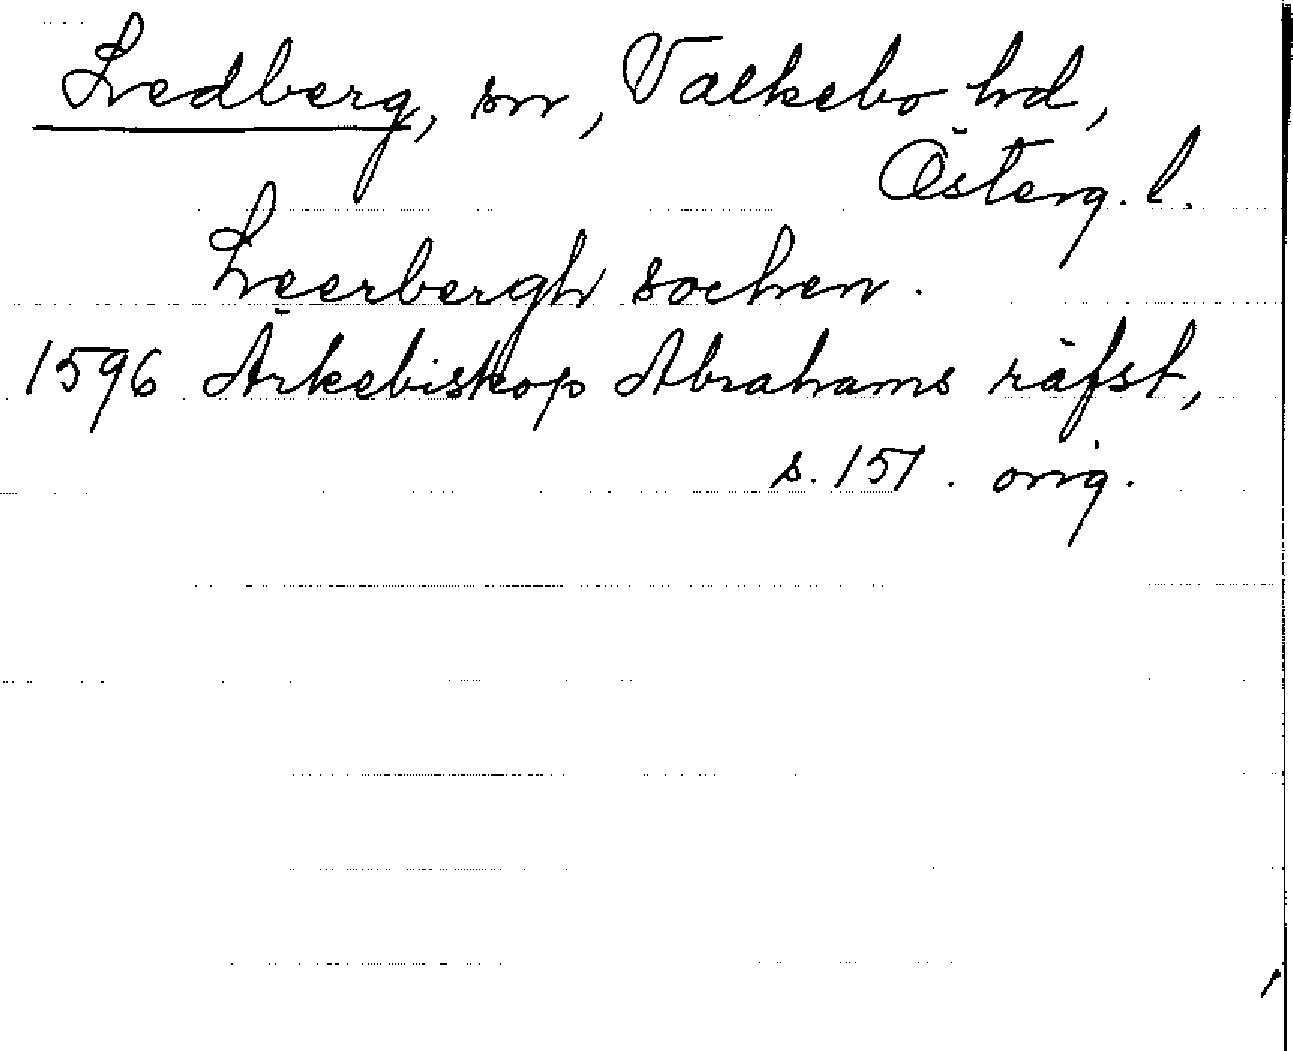 Ledberg, sn, Valkebo hd,
Österg. l.
Leerbergh sochen.
1596 Ärkebiskop Abrahams räfst,
s. 151. orig.